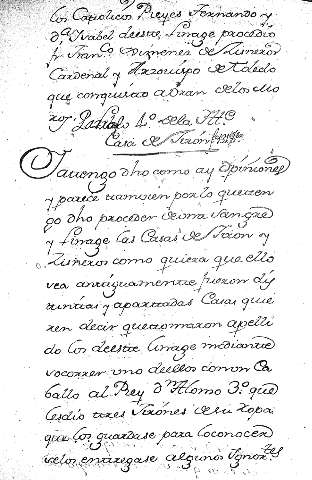 los Catolicos Reyes Fernando y
Dª Ysabel deeste Linage procedio
fr. Franco Ximenez de Zisneros
Cardenal y Arzovispo de Toledo
que conquisto a Oran de los Mo
ros
Titulo 4º dela Hª
Casa de Jirón
Ya tengo dho como ay Opiniones
y parece tambien por lo que ten
go dho proceder de una sangre
y Linage las Casas de Jiron y
Zisneros como quiera que ello
sea antiguamente fueron dis
tintas y apartadas Casas quie
ren decir que tomaron apelli
do los deeste Linage mediante
socorrer uno de ellos con un Ca
ballo al Rey Dn Alonso 3º que
les dio tres Jirones de su ropa
que los guardase para lo conocer y
velos entregase algunos Ignor.tes